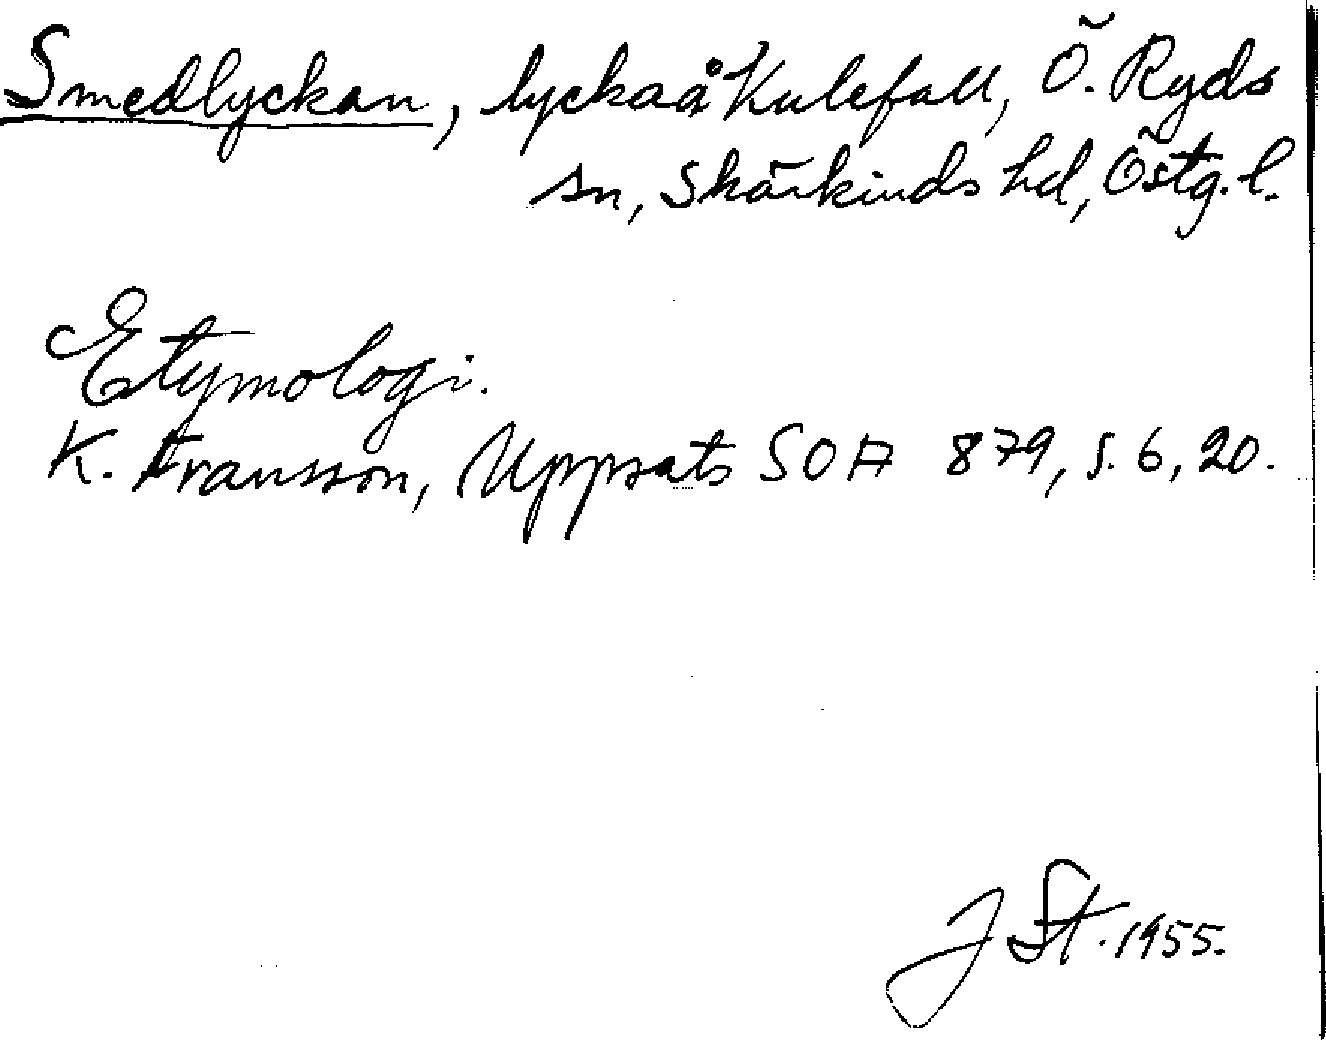 Smedlyckan, lycka å Kulefall, Ö. Ryds
sn, Skärkinds hd, Östg. l.
Etymologi.
K. Fransson, Uppsats SOA 879, s. 6, 20.
J St. 1955.